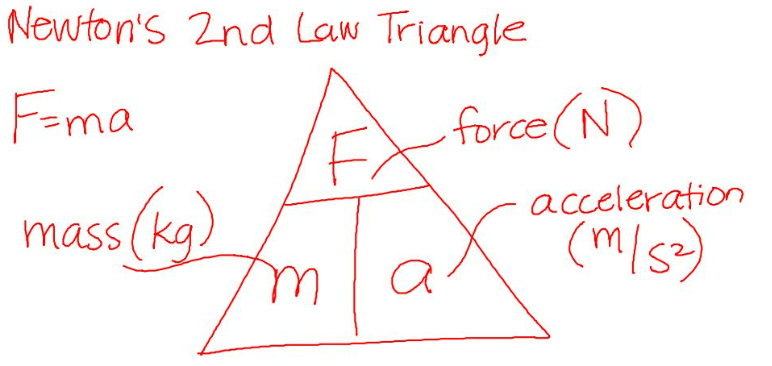 Newton's 2nd Law Triangle
F=ma
F
force (N)
mass (kg)
acceleration
(m/s²)
m
a